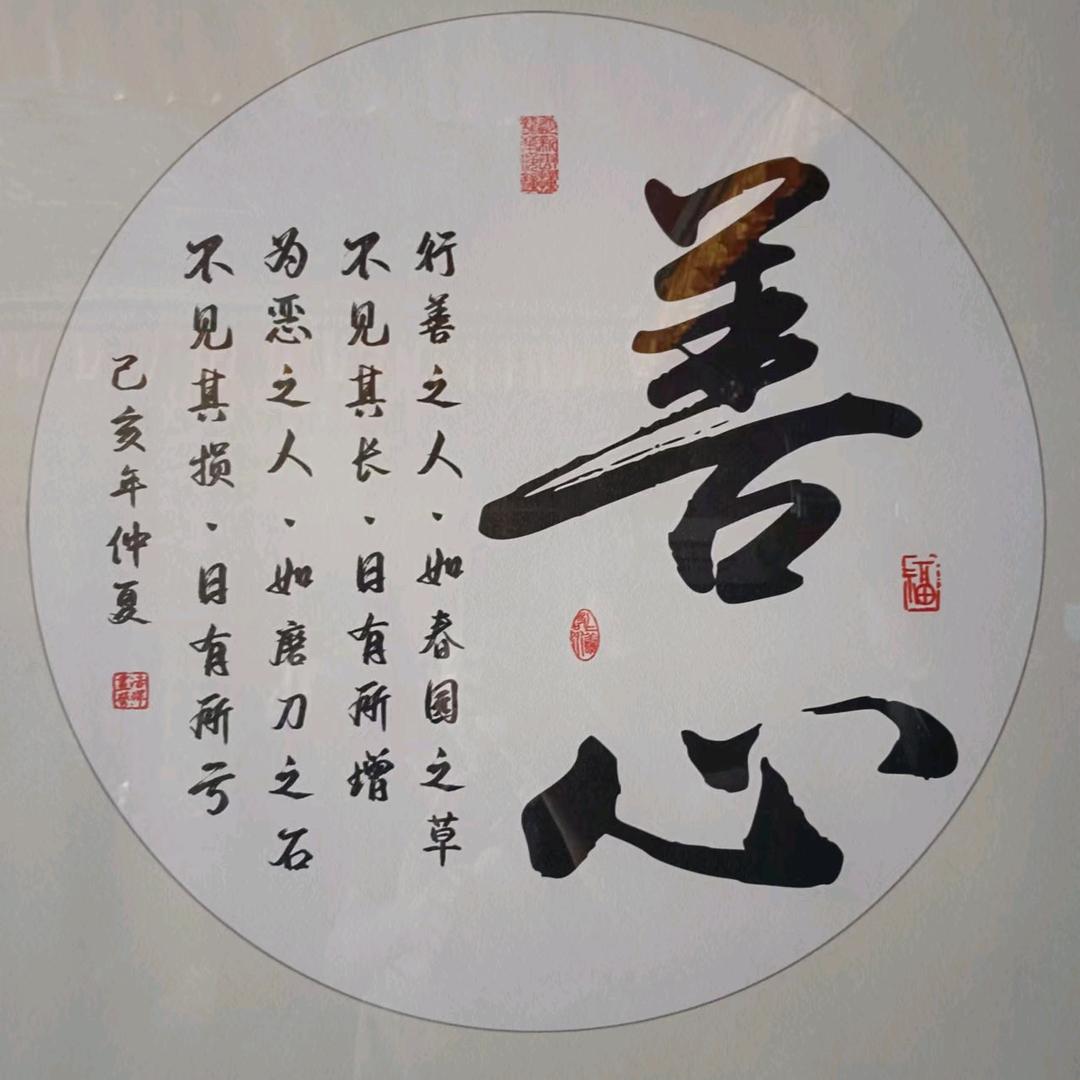 善心
行善之人·如春园之草
不见其长·日有所增
为恶之人·如磨刀之石
不见其损·日有所亏
己亥年仲夏
福